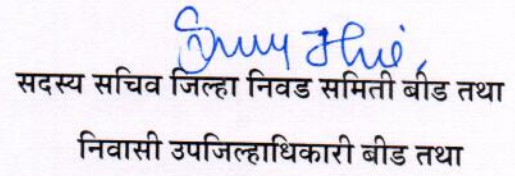 सदस्य सचिव जिल्हा निवड समिती बीड तथा
निवासी उपजिल्हाधिकारी बीड तथा